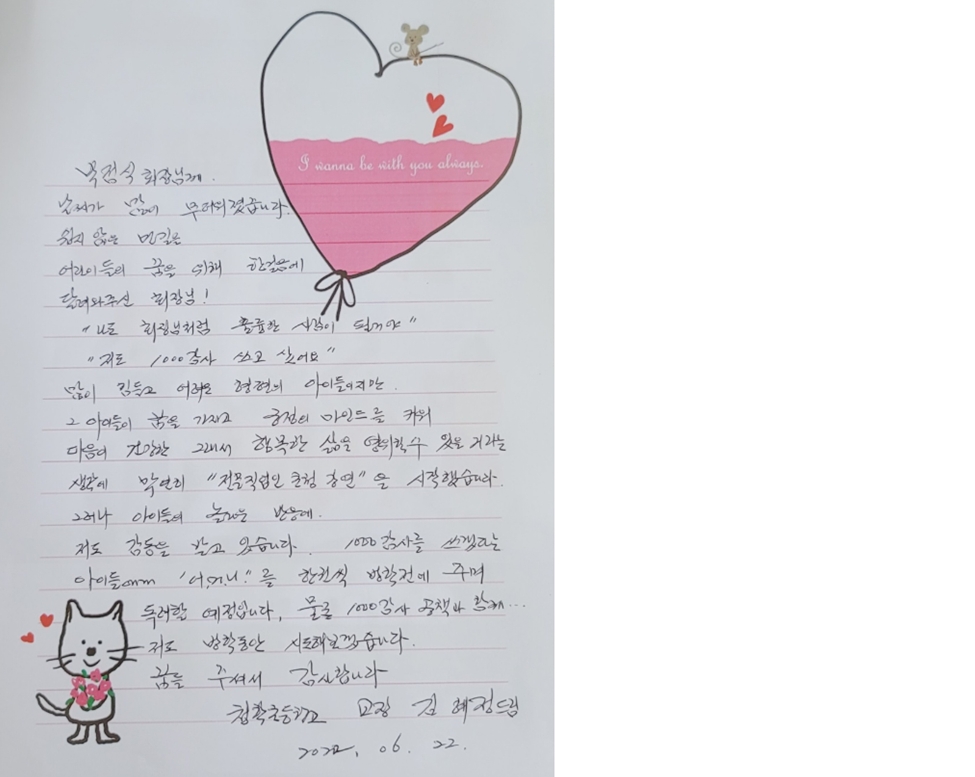 I wanna be with you always.
박점식 회장님께.
날씨가 많이 무더워졌습니다.
쉽지 않은 먼길을
어린이들의 꿈을 위해 한걸음에
달려와주신 회장님!
"나도 회장님처럼 훌륭한 사람이 될거야"
"저도 1000감사 쓰고 싶어요"
많이 힘들고 어려운 형편의 아이들이지만.
그 아이들이 꿈을 가지고 긍정의 마인드를 키워
마음이 건강한 그래서 행복한 삶을 영위할수 있을 거라는
생각에 막연히 "전문직업인 초청 강연"을 시작했습니다.
그러나 아이들의 놀라운 반응에.
저도 감동을 받고 있습니다. 1000감사를 쓰겠다는
아이들에게 '어.머.니.'를 한권씩 방학전에 주며
독려할 예정입니다, 물론 1000감사 공책과 함께...
저도 방학동안 시도해보겠습니다.
꿈을 주셔서 감사합니다
청학초등학교 교장 김 혜정드림
2022. 06. 22.